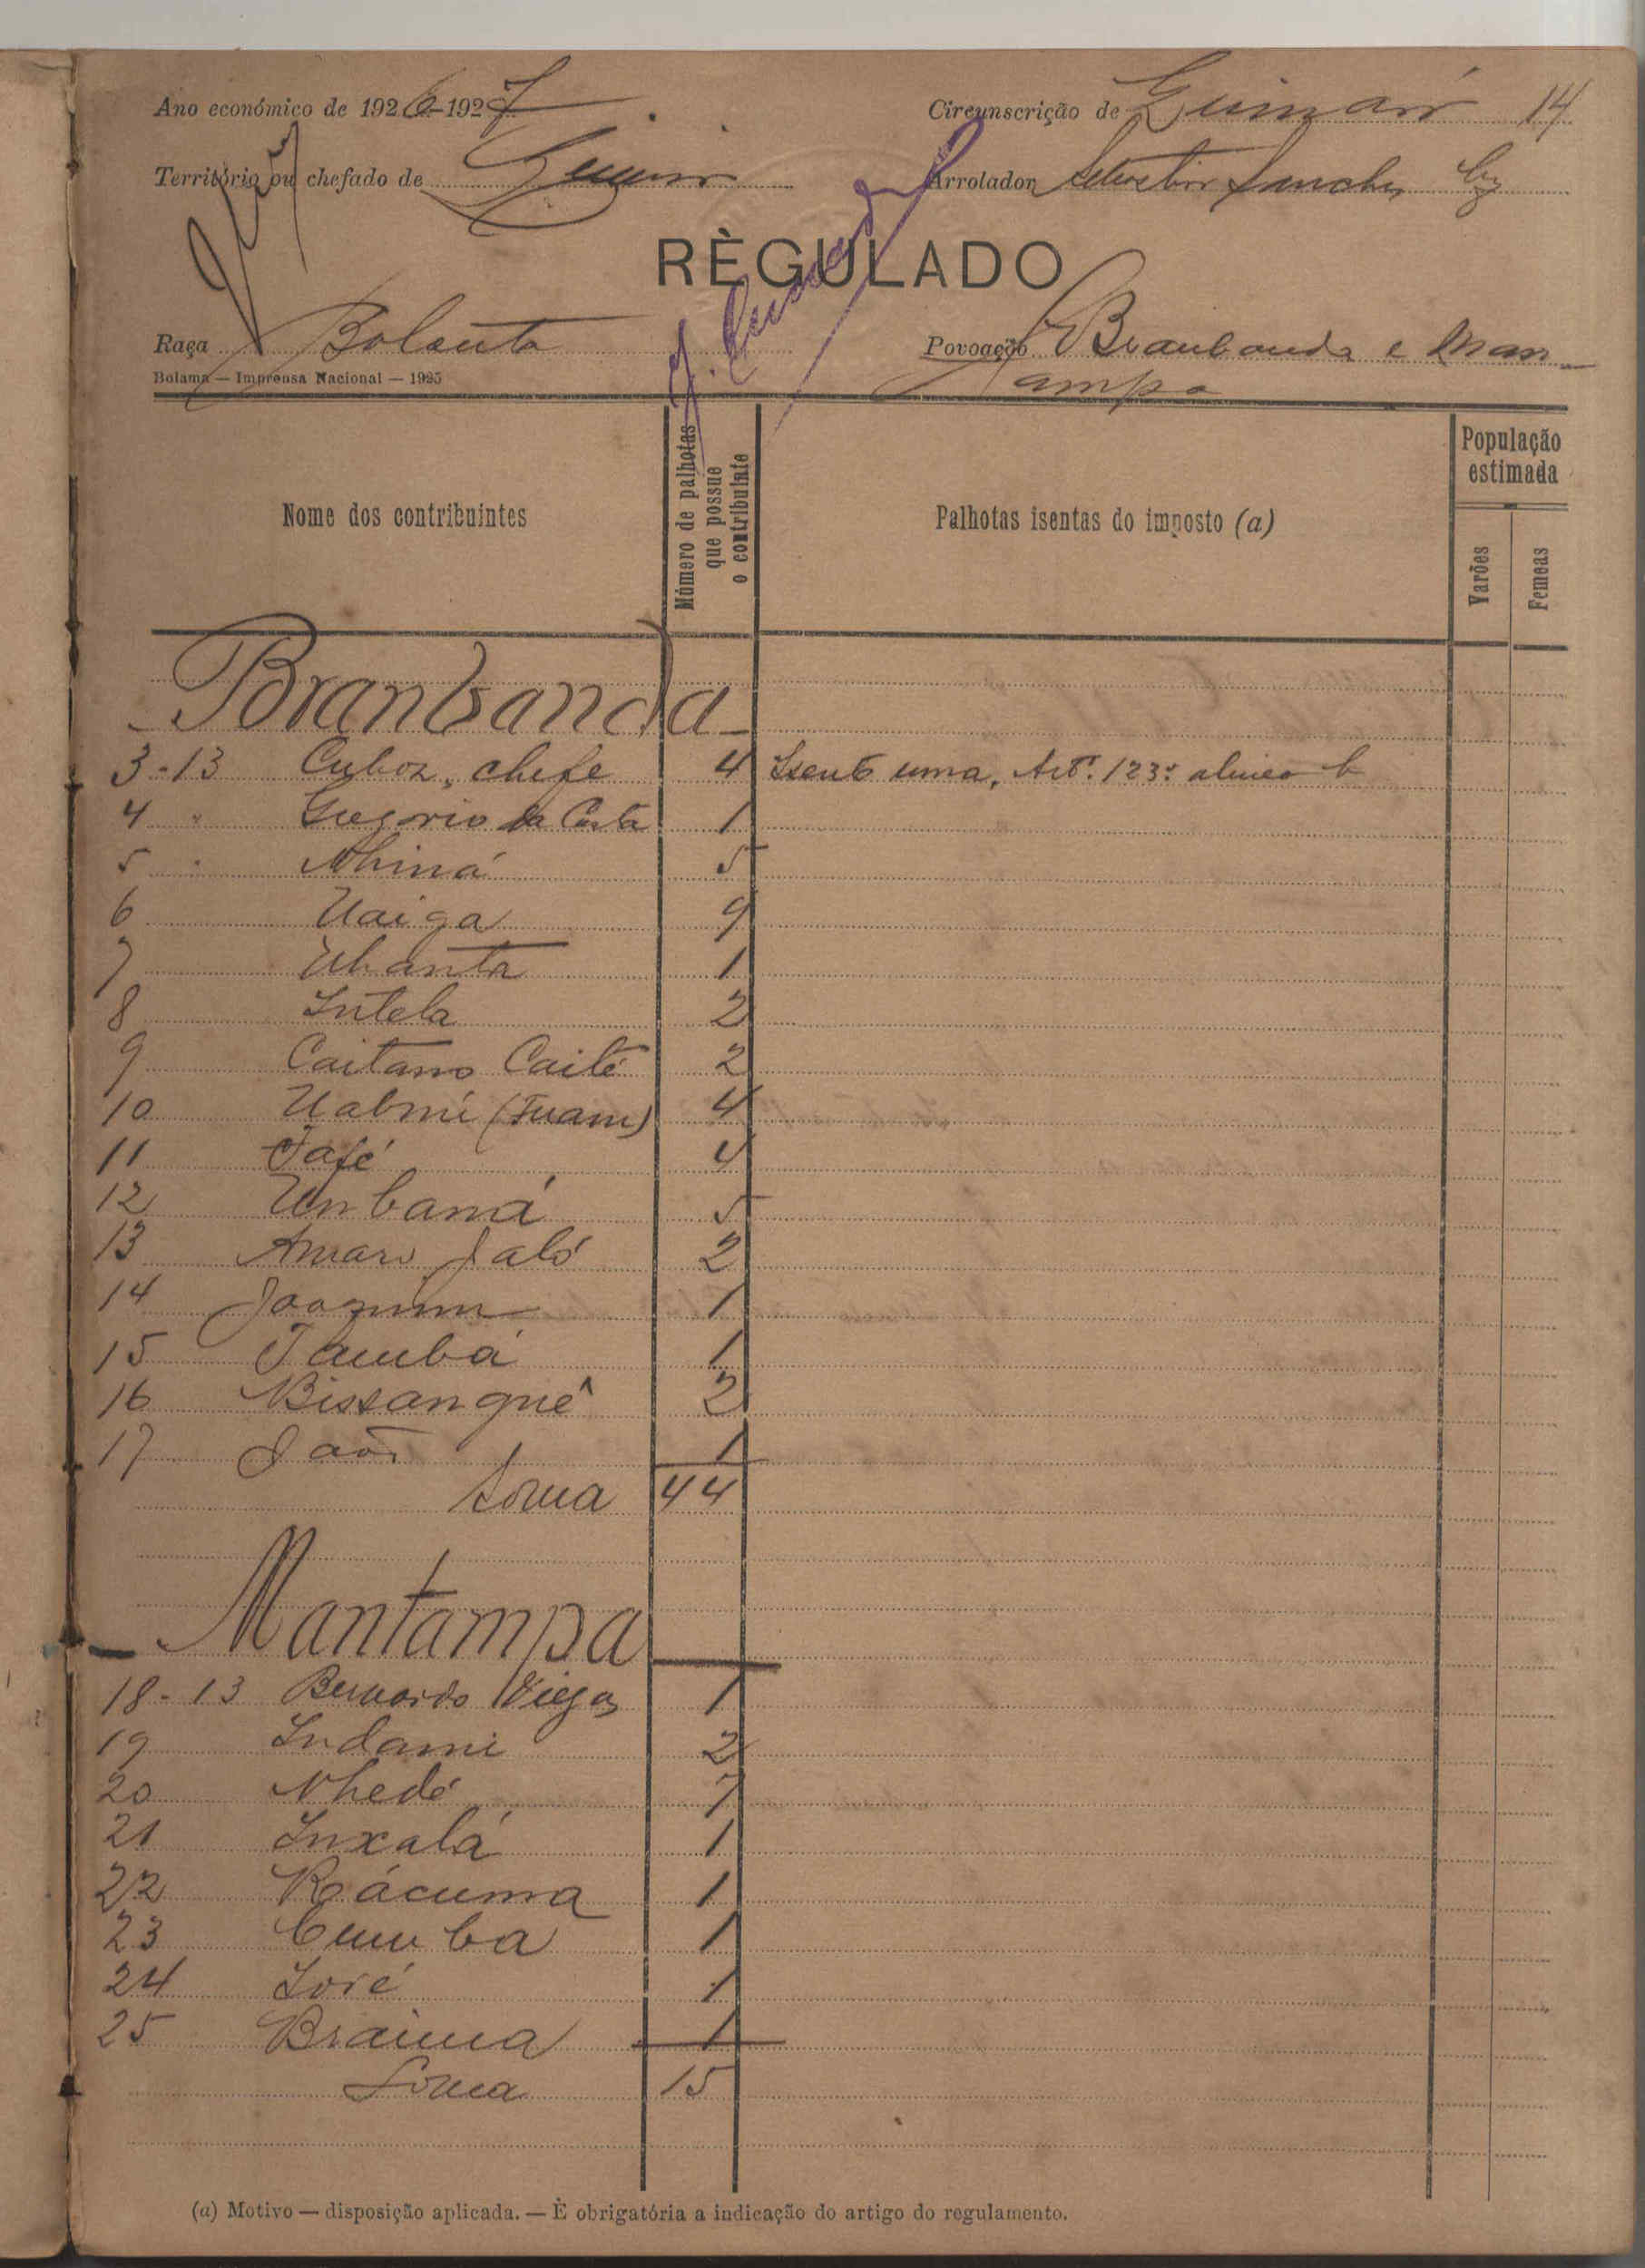 Ano económico de 1926-1927
Circunscrição de 14
Território ou chefado de
Arrolador Sanches
RÈGULADO
Raça Balanta
Povoação Branbanda e Man
tampa
Bolama — Imprensa Nacional — 1925
Nome dos contribuintes
Número de palhotas que possue o contribuinte
Palhotas isentas do imposto (a)
População estimada
Varões
Femeas
Branbanda
3-13 chefe 4 Isento uma, Artº. 123º alinea b
4 " Gregorio da Costa 1
5 " Nhiná 5
6 Uaiga 9
7 Uhanta 1
8 Intela 2
9 Caitano Caité 2
10 4
11 Jafé 4
12 Unbaná 5
13 Amaro Jaló 2
14 Joaquim 1
15 Jambá 1
16 Bissanguê 2
17 João 1
Soma 44
Mantampa
18-13 Bernardo Viegas 1
19 Indami 2
20 Nhedé 7
21 Inxalá 1
22 Rácuma 1
23 Cumba 1
24 José 1
25 Braima 1
Soma 15
(a) Motivo — disposição aplicada. — È obrigatória a indicação do artigo do regulamento.